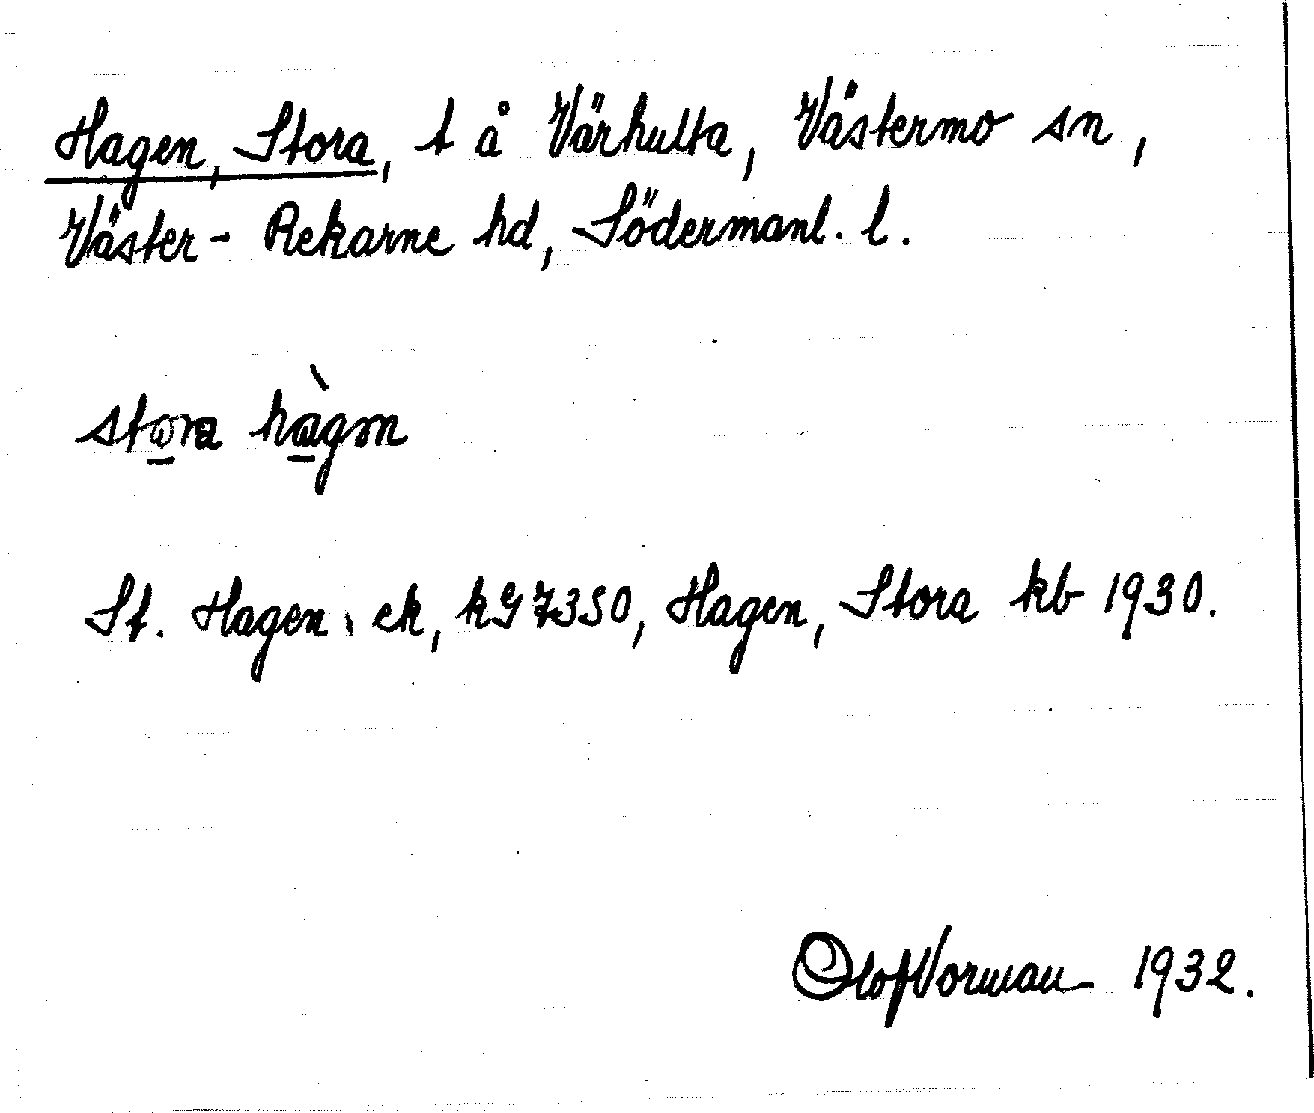 Hagen, Stora, t å Värhulta, Västermo sn,
Väster-Rekarne hd, Södermanl. l.
stora hàgən
St. Hagen ek, kG 7350, Hagen, Stora kb 1930.
Olof Vorman 1932.